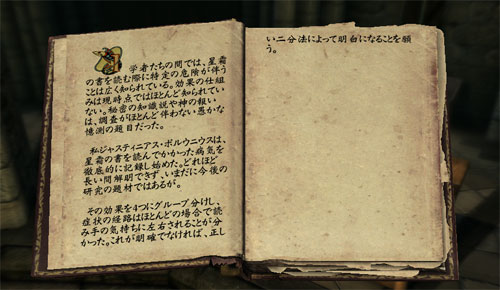 学者たちの間では、星霜
の書を読む際に特定の危険が伴う
ことは広く知られている。効果の仕組
みは現時点ではほとんど知られてい
ない。秘密の知識説や神の報い
は、調査がほとんど伴わない愚かな
憶測の題目だった。
私ジャスティニアス・ポルウニウスは、
星霜の書を読んでかかった病気を
徹底的に記録し始めた。どれほど
長い間解明できず、いまだに今後の
研究の題材ではあるが。
その効果を4つにグループ分けし、
症状の経路はほとんどの場合で読
み手の気持ちに左右されることが分
かった。これが明確でなければ、正し
い二分法によって明白になることを願
う。